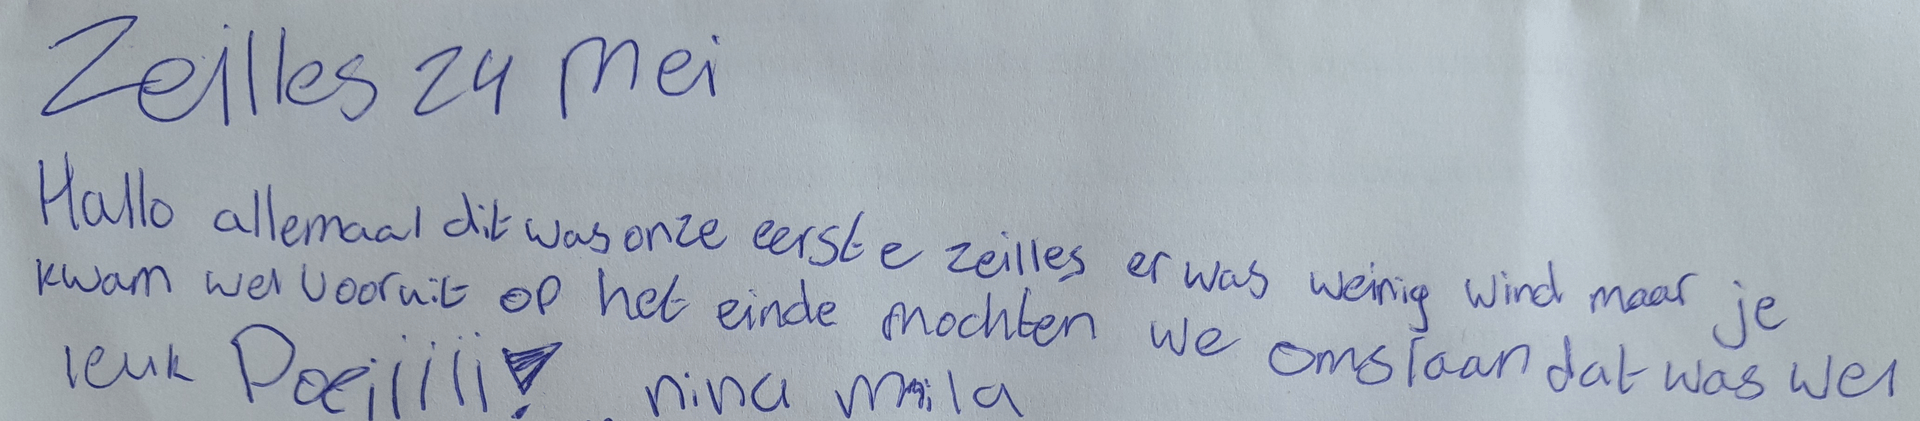 Zeilles 24 Mei
Hallo allemaal dit was onze eerste zeilles er was weinig wind maar je
kwam wel vooruit op het einde mochten we omslaan dat was wel
leuk Doeiiiii! nina mila